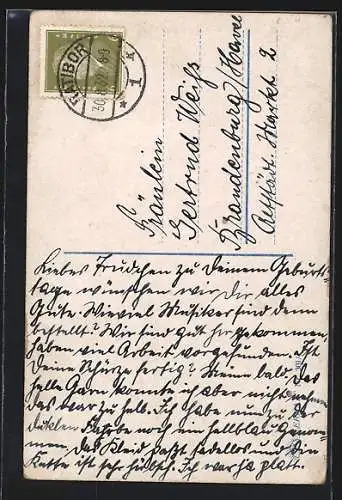 RATIBOR
1
Fräulein
Gertrud Weiß
Brandenburg (Havel
Altstädt. Markt 2
Liebes Trudchen zu Deinem Geburts-
tage wünschen wir Dir alles
Gute. Wieviel Musiker sind denn
bestellt? Wir sind gut hergekommen,
haben viel Arbeit vorgefunden. Ist
Deine Schürze fertig? Meine bald. Das
helle Garn konnte ich aber nicht nehmen
das war zu hell. Ich habe nun zu der
dunklen Farbe noch ein hellblau genom-
men, das Kleid paßt tadellos und die
Kette ist sehr hübsch. Ich war ja platt.